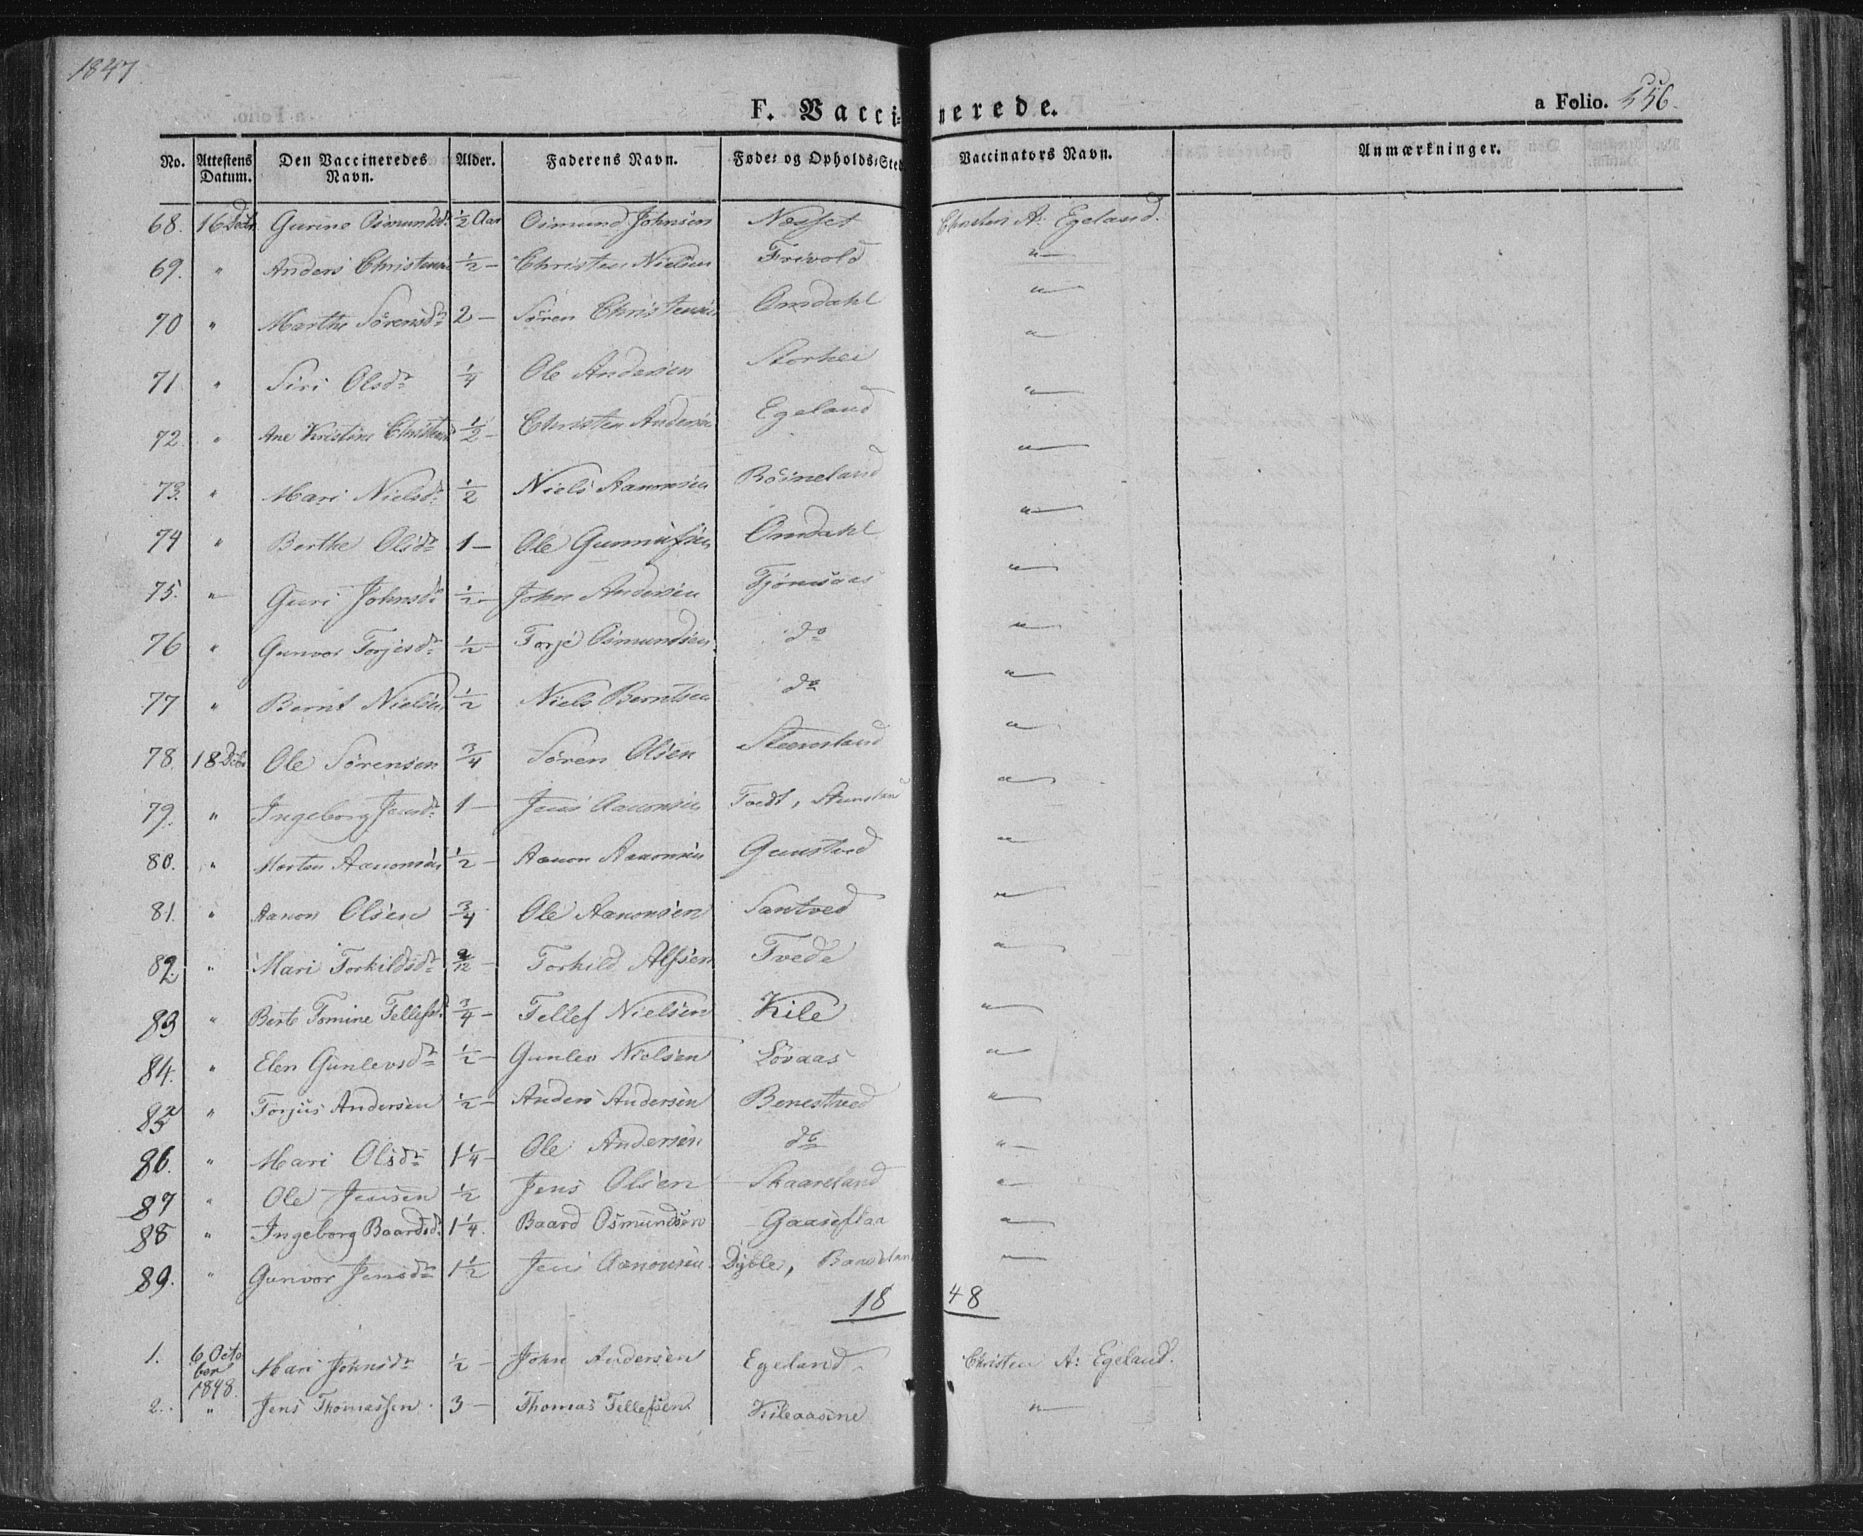 1847
F. Vaccinerede.
a Folio. 556.
No. Attestens Datum. Den Vaccineredes Navn. Alder. Faderens Navn. Føde- og Opholds-Sted Vaccinators Navn. Anmærkninger.
68. 16 Decbr Gurine Osmundsdr ½ Aar Osmund Johnsen Nesset Christen A: Egeland.
69. " Anders Christensen ½ — Christen Nielsen Frivold "
70 " Marthe Sørensdr 2 — Søren Christensen Omdahl "
71. " Siri Olsdr ¼ Ole Andersen Storhei "
72. " Ane Kristine Christensd ½ — Christen Andersen Egeland "
73. " Mari Nielsdr ½ Niels Aanonsen Røineland "
74 " Berthe Olsdr 1 — Ole Gunnufsen Omdahl "
75. " Guri Johnsdr ½ — John Andersen Tjømsaas "
76 " Gunvor Torjesdr ½ — Torje Osmundsen do "
77 " Bernt Nielsen ½ Niels Berntsen do "
78. 18 Decbr Ole Sørensen ¾ Søren Olsen "
79. " Ingeborg Jensdr 1 — Jens Aanonsen "
80. " Morten Aanonsen ½ — Aanon Aanonsen "
81. " Aanon Olsen ¾ Ole Aanonsen Santved "
82. " Mari Torkildsdr 9/12 — Torkild Alfsen Tvede "
83 " Berte Tomine Tellefsd. ¾ — Tellef Nielsen Kile "
84. " Elen Gunlevsdr ½ — Gunlev Nielsen Løvaas "
85 " Torjus Andersen ½ — Anders Andersen Benestved "
86. " Mari Olsdr 1¼ — Ole Andersen do "
87 " Ole Jensen ½ Jens Olsen Skaareland "
88 " Ingeborg Baardsdr 1¼. Baard Osmundsen Gaaseflaa "
89. " Gunvor Jensdr 1½ Jens Aanonsen Dyble, "
1848
1. 6 October 1848. Mari Johnsdr ½ — John Andersen Egeland Christen A: Egeland.
2. " Jens Thomassen 3 — Thomas Tellefsen Kileaasene "